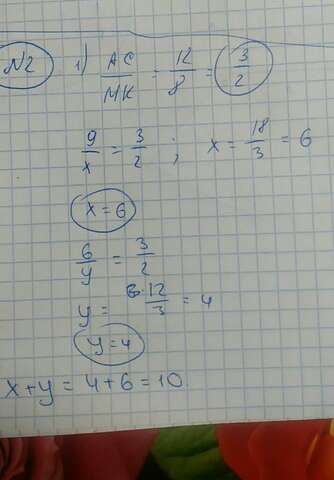 N2 1) AC/MK = 12/8 = 3/2
9/x = 3/2 ; x = 18/3 = 6
x = 6
6/y = 3/2
y = 12/3 = 4
y = 4
x + y = 4 + 6 = 10